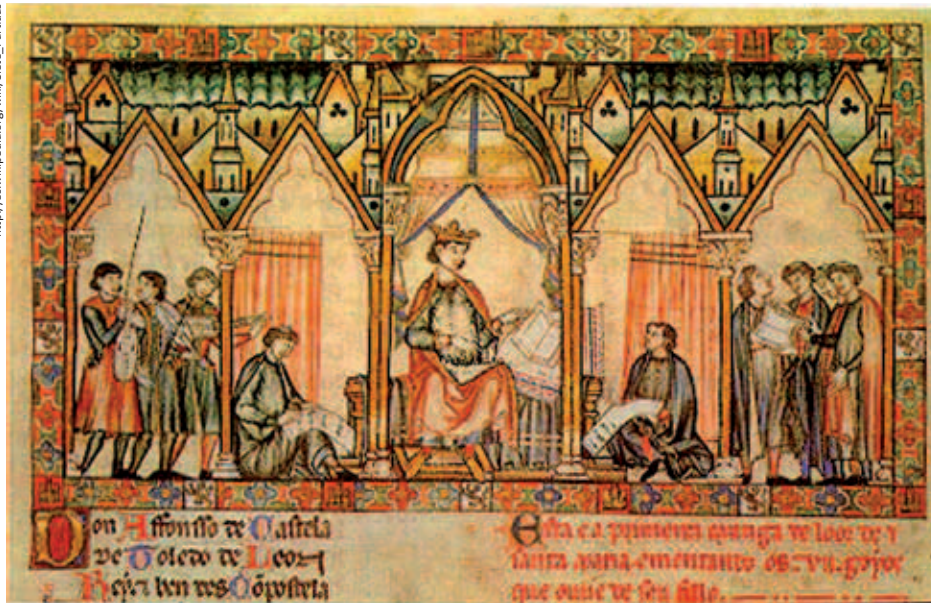 Don Affonsso de Castela
de Toledo de Leon
Rey e ben des Conpostela
Esta e a primeira cantiga de loor de
santa maria ementando os vii goyos
que ouue de seu fillo.